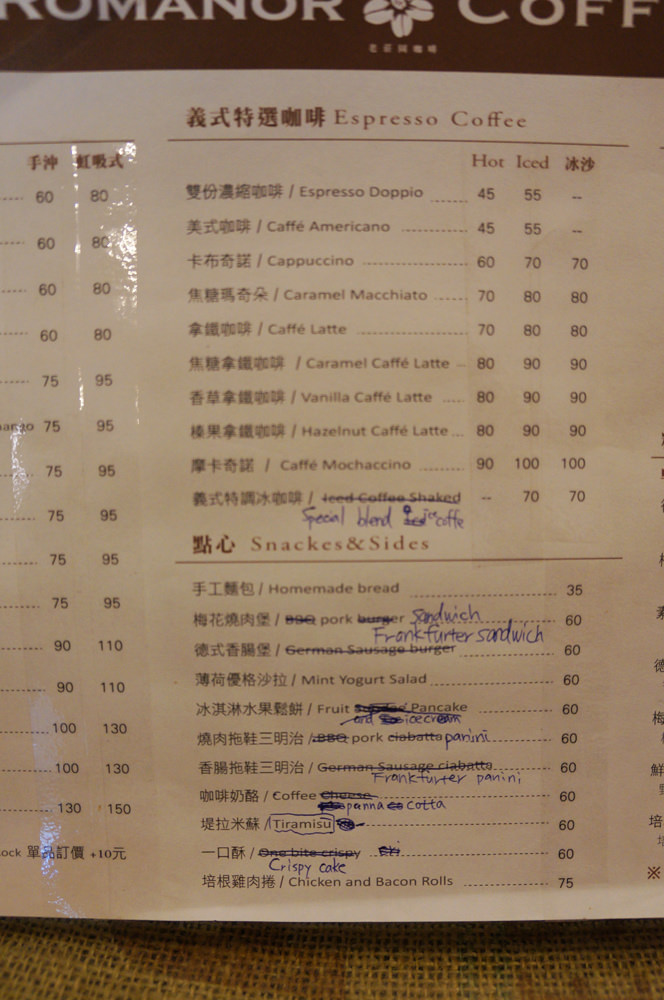 ROMANOR COFF
老莊園咖啡
手沖 虹吸式
60 80
60 80
60 80
60 80
75 95
75 95
75 95
75 95
75 95
75 95
90 110
90 110
100 130
100 130
130 150
單品訂價 +10元
義式特選咖啡 Espresso Coffee
Hot Iced 冰沙
雙份濃縮咖啡 / Espresso Doppio 45 55 --
美式咖啡 / Caffé Americano 45 55 --
卡布奇諾 / Cappuccino 60 70 70
焦糖瑪奇朵 / Caramel Macchiato 70 80 80
拿鐵咖啡 / Caffé Latte 70 80 80
焦糖拿鐵咖啡 / Caramel Caffé Latte 80 90 90
香草拿鐵咖啡 / Vanilla Caffé Latte 80 90 90
榛果拿鐵咖啡 / Hazelnut Caffé Latte 80 90 90
摩卡奇諾 / Caffé Mochaccino 90 100 100
義式特調冰咖啡 / Iced Coffee Shaked -- 70 70
Special blend ice coffe
點心 Snackes&Sides
手工麵包 / Homemade bread 35
梅花燒肉堡 / BBQ pork burger Sandwich 60
Frankfurter sandwich
德式香腸堡 / German Sausage burger 60
薄荷優格沙拉 / Mint Yogurt Salad 60
冰淇淋水果鬆餅 / Fruit Pancake 60
and icecream
燒肉拖鞋三明治 / BBQ pork ciabatta panini 60
香腸拖鞋三明治 / German Sausage ciabatta 60
Frankfurter panini
咖啡奶酪 / Coffee Cheese 60
panna cotta
堤拉米蘇 / Tiramisu 60
一口酥 / One bite crispy 60
Crispy cake
培根雞肉捲 / Chicken and Bacon Rolls 75